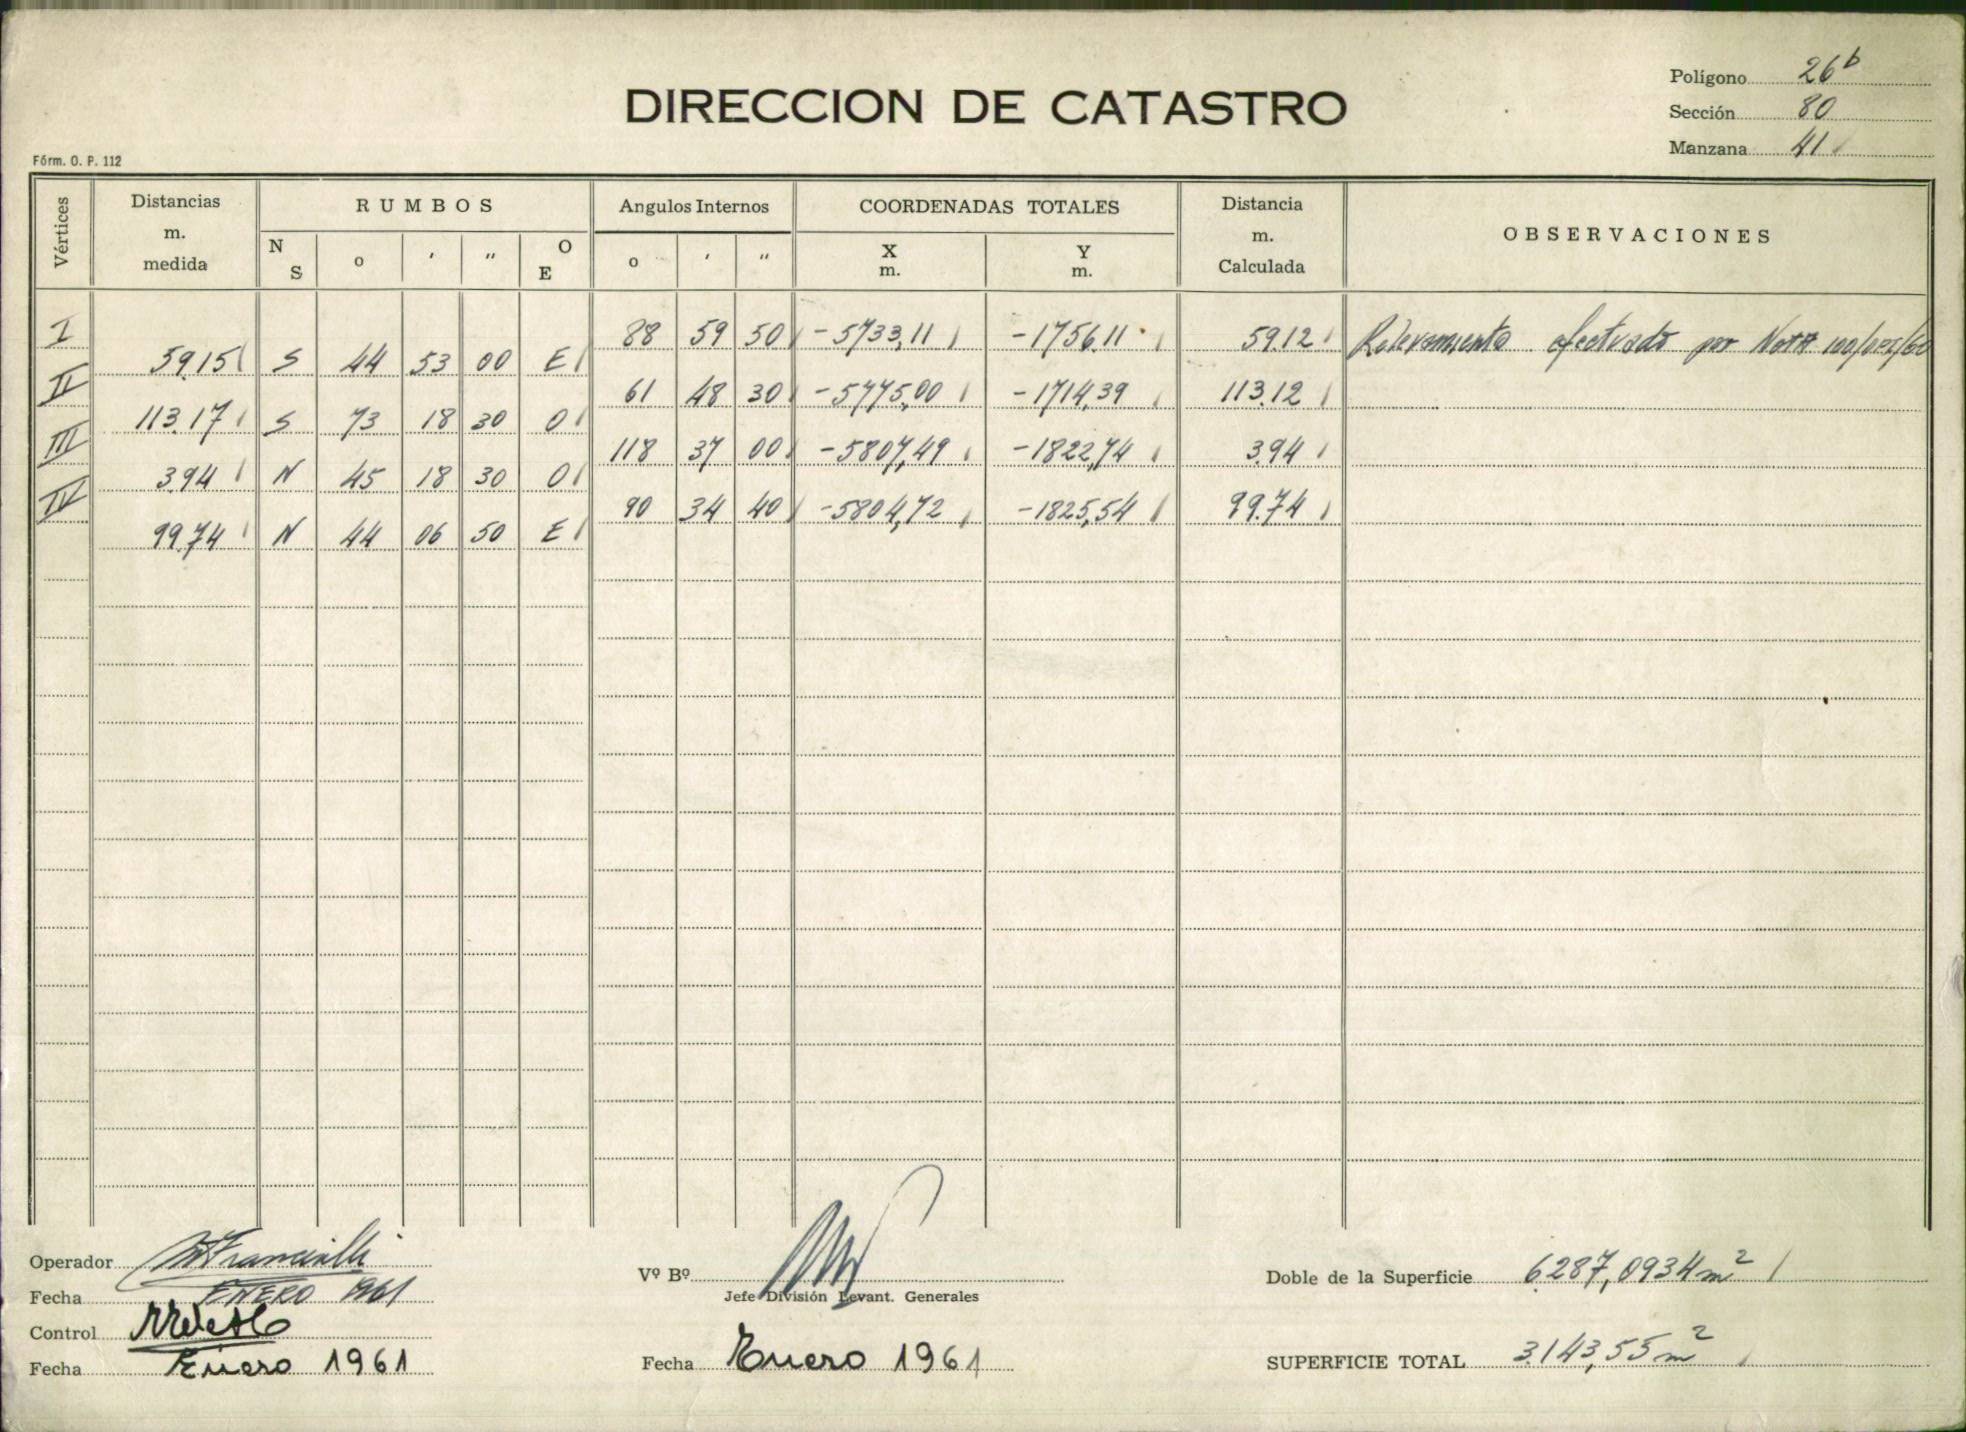 Polígono 26b
DIRECCION DE CATASTRO
Sección 80
Manzana 41
Fórm. O. P. 112
Vértices
Distancias m. medida
RUMBOS
Angulos Internos
COORDENADAS TOTALES
Distancia m. Calculada
OBSERVACIONES
N S o ' " O E
o ' "
X m. Y m.
I 88 59 50 -5733,11 -1756.11 59.12 Relevamiento efectuado por Nota
59.15 S 44 53 00 E
II 61 48 30 -5775,00 -1714,39 113.12
113.17 S 73 18 30 O
III 118 37 00 -5807,49 -1822,74 3.94
3.94 N 45 18 30 O
IV 90 34 40 -5804,72 -1825,54 99.74
99.74 N 44 06 50 E
Operador
Fecha ENERO 1961
Control
Fecha Enero 1961
Vº Bº
Jefe División Levant. Generales
Fecha Enero 1961
Doble de la Superficie 6.287,0934 m2
SUPERFICIE TOTAL 3.143,55 m2